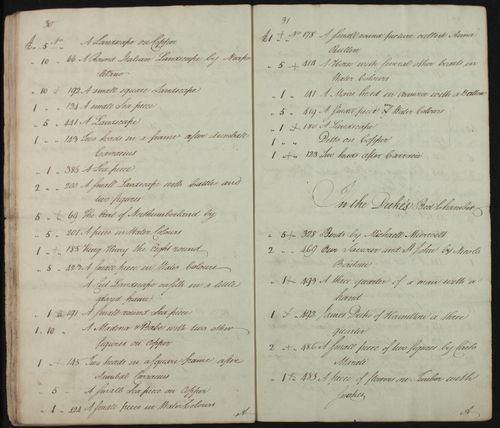 30
£ „ 5 „ No „ A Landscape on Copper
„ 10 „ 66 A Round Italian Landscape by
„ 10 ÷ 192 A small square Landscape
1 „ 134 A small Sea piece
„ 5 „ 441 A Landscape
1 „ 143 Two heads in a frame after Annibale
Carracius
1 „ 385 A Sea piece
2 „ 200 A small Landscape with Cattle and
two figures
5 ÷ 69 The Head of Northumberland by
„ 5 „ 201 A piece in Water Colours
1 ÷ 185 King Henry the Eight round
„ 5 „ 423 A small piece in Water Colours
A Landscape on silk in a little
glazd frame
1 191 A small round Sea piece
1 „ 10 „ A Madona & Babe with two other
figures on Copper
1 ÷ 145 Two heads in a square frame after
Annibal Carracius
„ 5 „ A small Sea piece on Copper
„ 1 „ 424 A small piece in Water Colours
A
31
£1 ÷ No 178 A small round picture without
„ 5 ÷ 414 A Horse with several other beasts in
Water Colours
„ 1 „ 141 A Mans head in armour with a
„ 5 „ 419 A small piece Water Colours
„ 1 ÷ 180 A Landscape
„ 1 „ Ditto on Copper
„ 1 ÷ 123 Two heads after Carracio
In the Duke's Bed Chamber
„ 5 ÷ 328 Birds by Michaell
2 „ 469 Our Saviour and St John by
1 ÷ 493 A three quarter of a man with a
1 ÷ 492 James Duke of Hamilton a three
quarter
2 ÷ 486 A small piece of two figures by Carlo
1 ÷ 483 A piece of flowers on Timber with
A